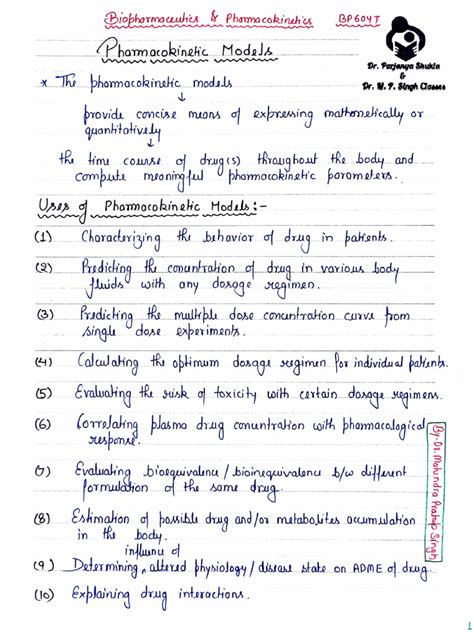 Biopharmaceutics & Pharmacokinetics BP604T
Dr. Parjanya Shukla
&
Dr. M. P. Singh Classes
Pharmacokinetic Models
* The pharmacokinetic models
↓
provide concise means of expressing mathematically or
quantitatively
↓
the time course of drug(s) throughout the body and
compute meaningful pharmacokinetic parameters.
Uses of Pharmacokinetic Models:-
(1) Characterizing the behavior of drug in patients.
(2) Predicting the concentration of drug in various body
fluids with any dosage regimen.
(3) Predicting the multiple dose concentration curve from
single dose experiments.
(4) Calculating the optimum dosage regimen for individual patients.
(5) Evaluating the risk of toxicity with certain dosage regimens.
(6) Correlating plasma drug concentration with pharmacological
response.
(7) Evaluating bioequivalence / bioinequivalence b/w different
formulation of the same drug.
(8) Estimation of possible drug and/or metabolites accumulation
in the body.
influence of
(9) Determining altered physiology / disease state on ADME of drug.
(10) Explaining drug interactions.
By-Dr. Mahendra Pratap Singh
1